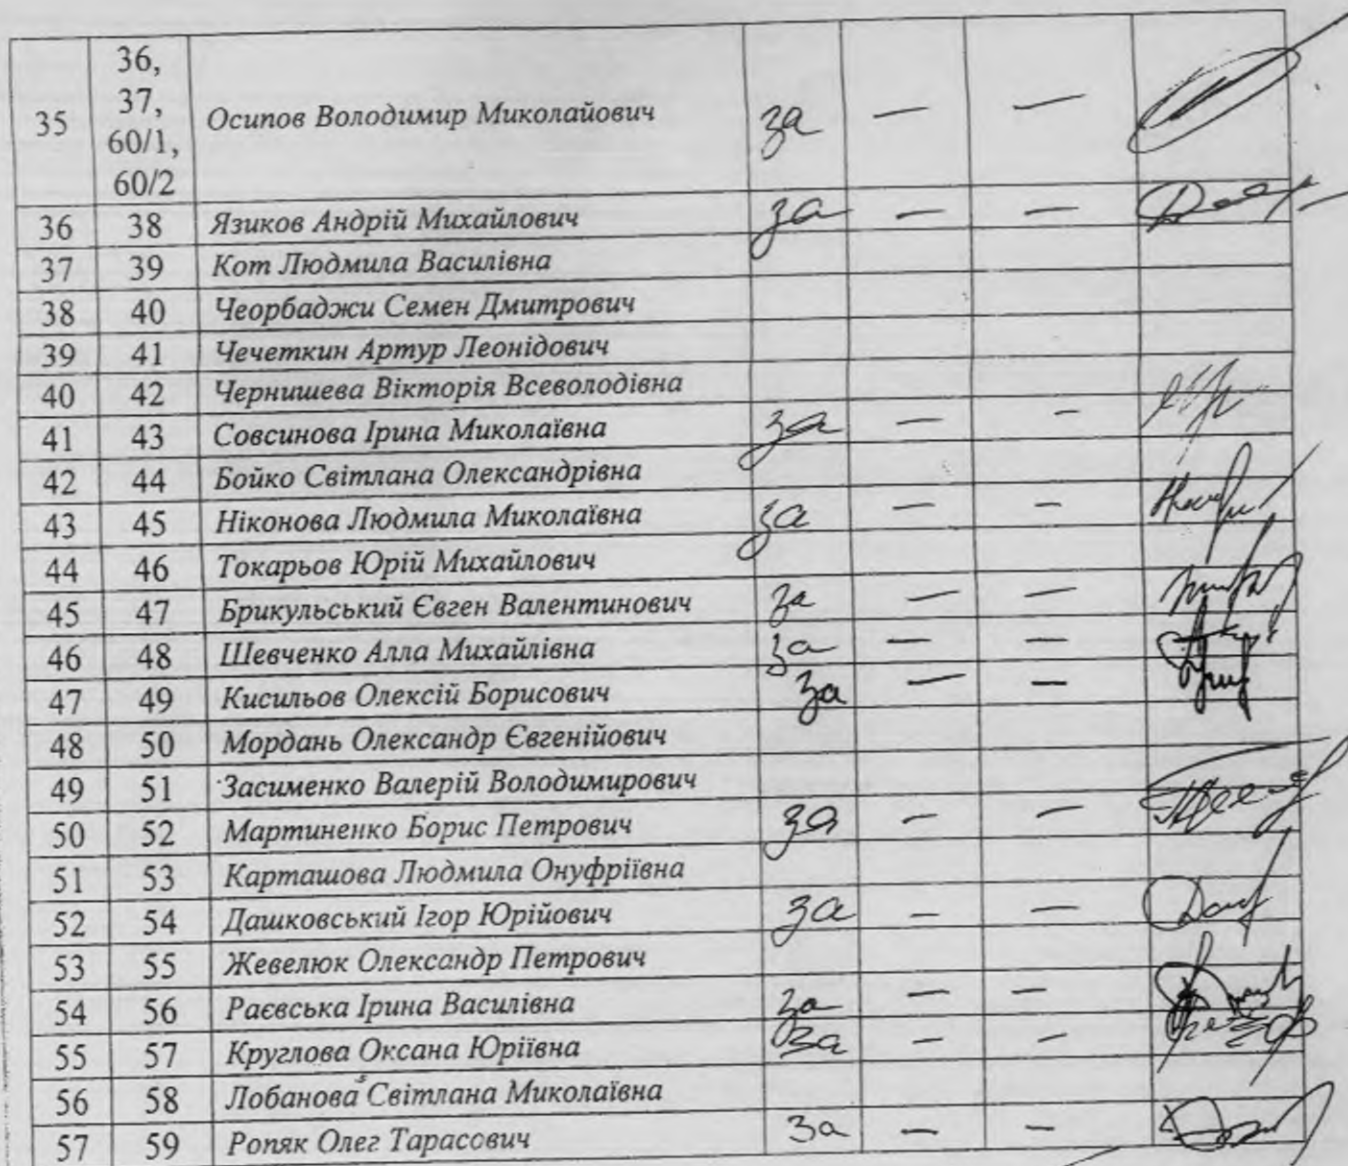 35 36, 37, 60/1, 60/2 Осипов Володимир Миколайович за — —
36 38 Язиков Андрій Михайлович за — —
37 39 Кот Людмила Василівна
38 40 Чеорбаджи Семен Дмитрович
39 41 Чечеткин Артур Леонідович
40 42 Чернишева Вікторія Всеволодівна
41 43 Совсинова Ірина Миколаївна за — -
42 44 Бойко Світлана Олександрівна
43 45 Ніконова Людмила Миколаївна за — -
44 46 Токарьов Юрій Михайлович
45 47 Брикульський Євген Валентинович за — —
46 48 Шевченко Алла Михайлівна за — —
47 49 Кисильов Олексій Борисович за — —
48 50 Мордань Олександр Євгенійович
49 51 Засименко Валерій Володимирович
50 52 Мартиненко Борис Петрович за — —
51 53 Карташова Людмила Онуфріївна
52 54 Дашковський Ігор Юрійович за — —
53 55 Жевелюк Олександр Петрович
54 56 Раєвська Ірина Василівна за — —
55 57 Круглова Оксана Юріївна за — —
56 58 Лобанова Світлана Миколаївна
57 59 Ропяк Олег Тарасович за — —